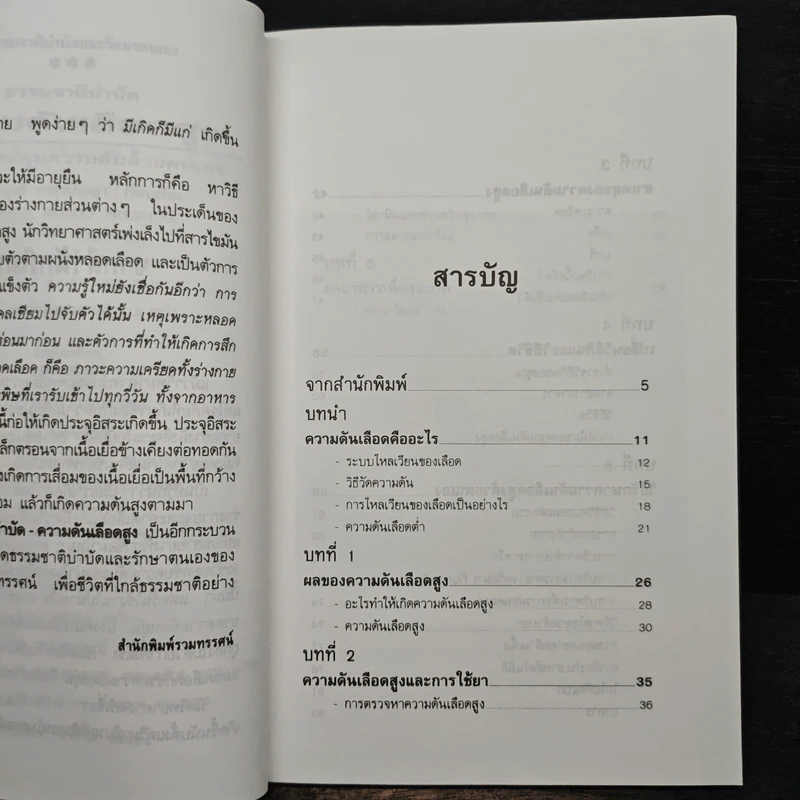 าย พูดง่ายๆ ว่า มีเกิดก็มีแก่ เกิดขึ้น
จะให้มีอายุยืน หลักการก็คือ หาวิธี
องร่างกายส่วนต่างๆ ในประเด็นของ
สูง นักวิทยาศาสตร์เพ่งเล็งไปที่สารไขมัน
บตัวตามผนังหลอดเลือด และเป็นตัวการ
แข็งตัว ความรู้ใหม่ยังเชื่อกันอีกว่า การ
คลเซียมไปจับตัวได้นั้น เหตุเพราะหลอด
ร่อนมาก่อน และตัวการที่ทำให้เกิดการสึก
ดเลือด ก็คือ ภาวะความเครียดทั้งร่างกาย
พิษที่เรารับเข้าไปทุกวี่วัน ทั้งจากอาหาร
นี้ก่อให้เกิดประจุอิสระเกิดขึ้น ประจุอิสระ
ล็กตรอนจากเนื้อเยื่อข้างเคียงต่อทอดกัน
งเกิดการเสื่อมของเนื้อเยื่อเป็นพื้นที่กว้าง
อม แล้วก็เกิดความดันสูงตามมา
าบัด - ความดันเลือดสูง เป็นอีกกระบวน
ดธรรมชาติบำบัดและรักษาตนเองของ
ทรรศน์ เพื่อชีวิตที่ใกล้ธรรมชาติอย่าง
สำนักพิมพ์รวมทรรศน์
สารบัญ
จากสำนักพิมพ์ 5
บทนำ
ความดันเลือดคืออะไร 11
- ระบบไหลเวียนของเลือด 12
- วิธีวัดความดัน 15
- การไหลเวียนของเลือดเป็นอย่างไร 18
- ความดันเลือดต่ำ 21
บทที่ 1
ผลของความดันเลือดสูง 26
- อะไรทำให้เกิดความดันเลือดสูง 28
- ความดันเลือดสูง 30
บทที่ 2
ความดันเลือดสูงและการใช้ยา 35
- การตรวจหาความดันเลือดสูง 36